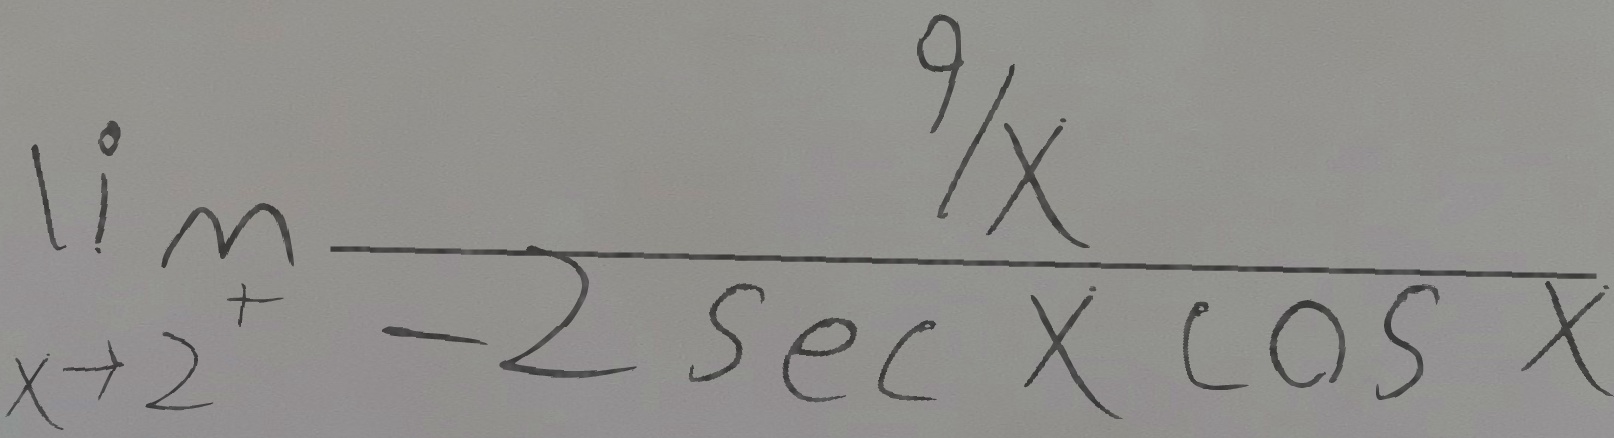 lim x→2⁺ (9/x)/(-2 sec x cos x)